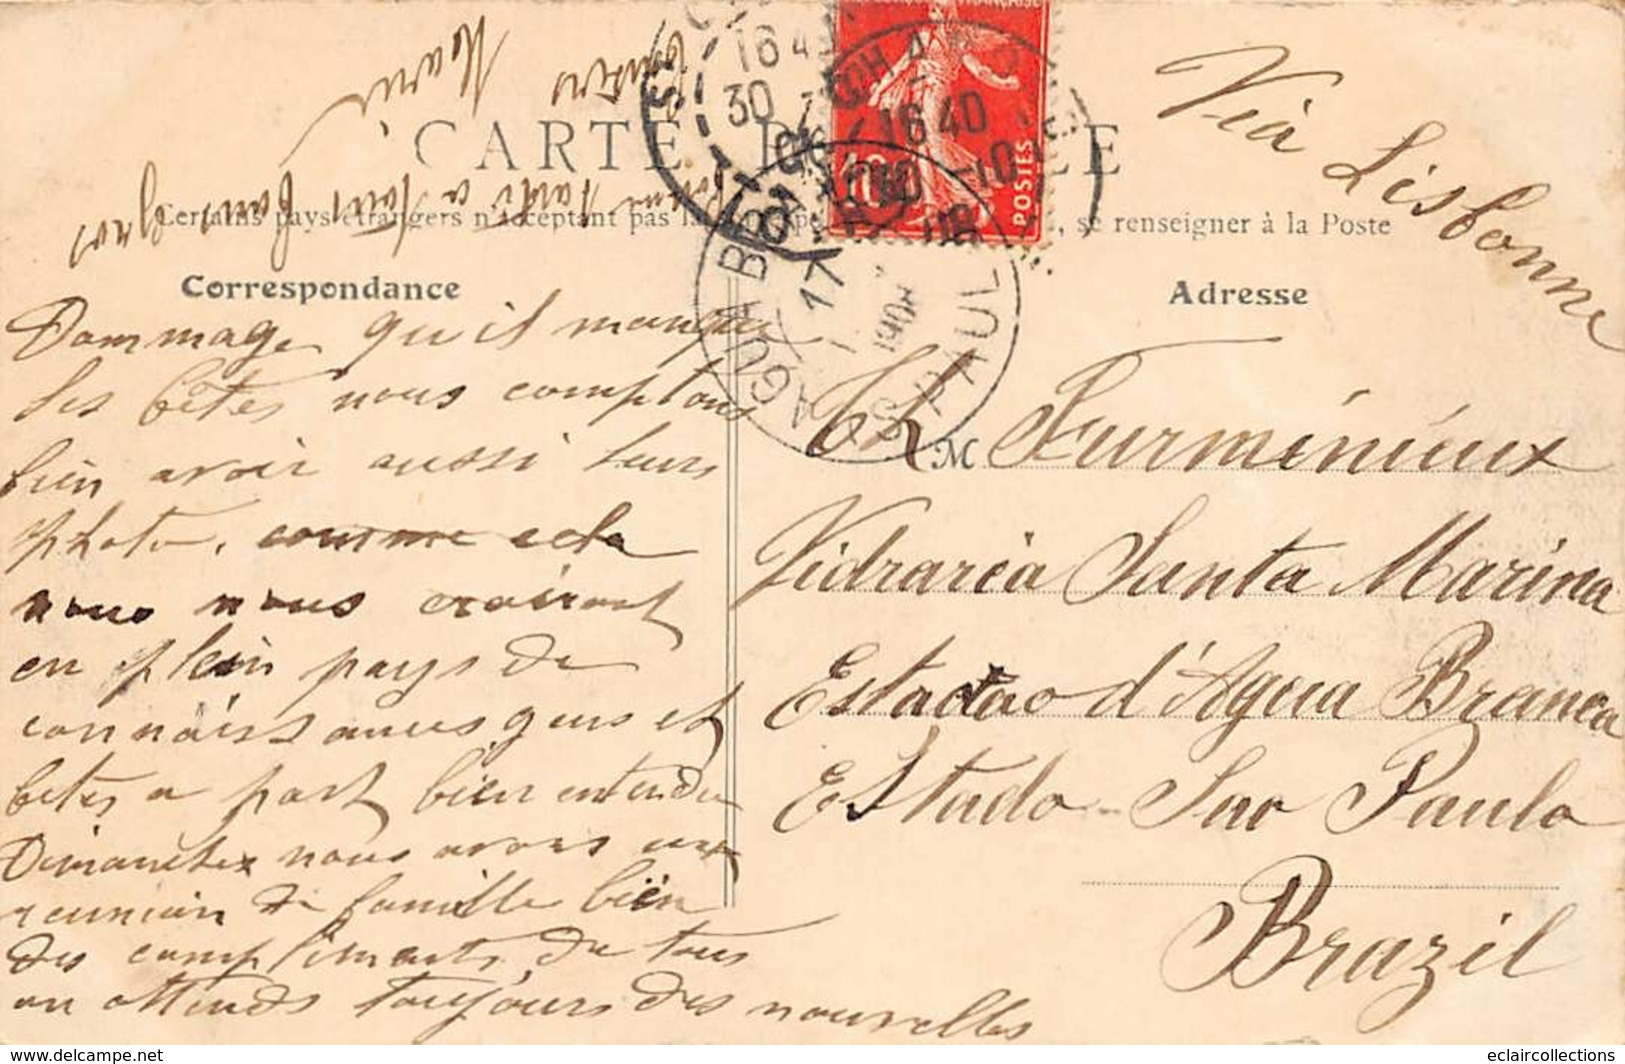 CARTE POSTALE
Certains pays étrangers n'acceptent pas la se renseigner à la Poste
Correspondance
Adresse
Via Lisbonne
Dommage qu'il manque
les bêtes nous comptons
bien avoir aussi leurs
photo. comme cela
nous nous croirons
en plein pays de
connaissances gens et
bêtes a part bien entendu
Dimanche nous avons eu
reunion de famille bien
des compliments de tous
on attends toujours des nouvelles
baisers
Marie
Ch M Furménieux
Vidraria Santa Marina
Estactao d'Agua Branca
Estado Sao Paulo
Brazil
POSTES
10
16 40
30
16 40
AGUA BRANCA
S. PAULO
17
1908
eclaircollections